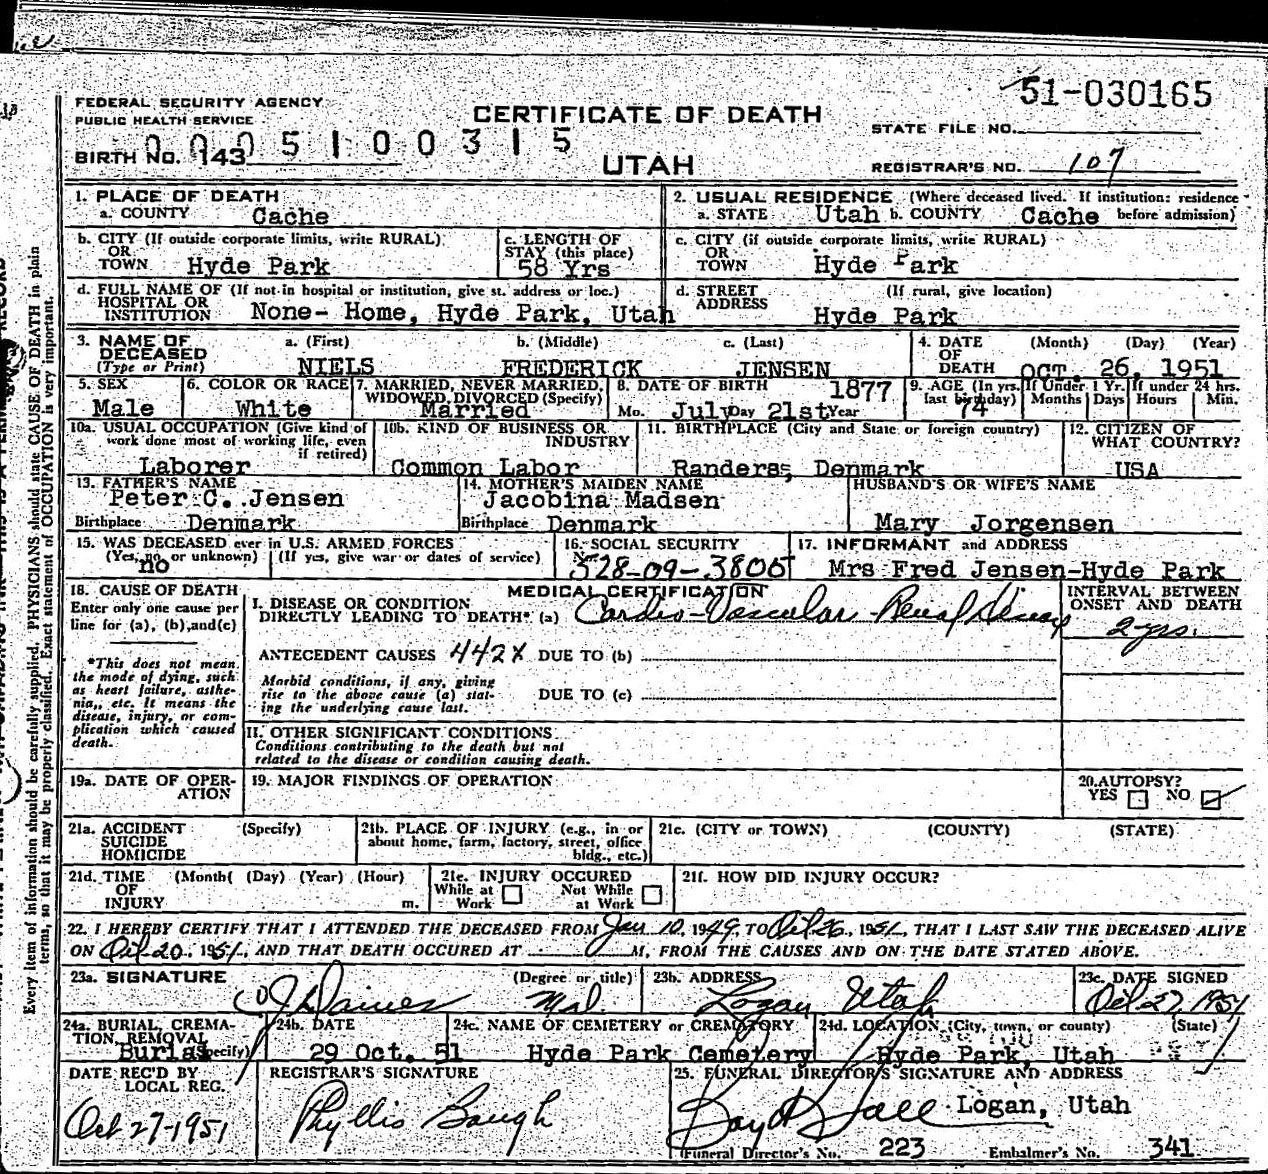 51-030165
FEDERAL SECURITY AGENCY
PUBLIC HEALTH SERVICE
CERTIFICATE OF DEATH
STATE FILE NO.
0005100315
BIRTH NO. 143
UTAH
REGISTRAR'S NO. 107
1. PLACE OF DEATH
a. COUNTY Cache
2. USUAL RESIDENCE (Where deceased lived. If institution: residence before admission)
a. STATE Utah b. COUNTY Cache
b. CITY (If outside corporate limits, write RURAL)
OR TOWN Hyde Park
c. LENGTH OF STAY (this place)
58 Yrs
c. CITY (if outside corporate limits, write RURAL)
OR TOWN Hyde Park
d. FULL NAME OF (If not in hospital or institution, give st. address or loc.)
HOSPITAL OR INSTITUTION None- Home, Hyde Park, Utah
d. STREET ADDRESS (If rural, give location)
Hyde Park
3. NAME OF DECEASED (Type or Print)
a. (First) b. (Middle) c. (Last)
NIELS FREDERICK JENSEN
4. DATE OF DEATH (Month) (Day) (Year)
OCT. 26, 1951
5. SEX
Male
6. COLOR OR RACE
White
7. MARRIED, NEVER MARRIED, WIDOWED, DIVORCED (Specify)
Married
8. DATE OF BIRTH 1877
Mo. July Day 21st Year
9. AGE (In yrs. last birthday) 74
If Under 1 Yr. Months Days
If under 24 hrs. Hours Min.
10a. USUAL OCCUPATION (Give kind of work done most of working life, even if retired)
Laborer
10b. KIND OF BUSINESS OR INDUSTRY
Common Labor
11. BIRTHPLACE (City and State or foreign country)
Randers, Denmark
12. CITIZEN OF WHAT COUNTRY?
USA
13. FATHER'S NAME
Peter C. Jensen
Birthplace Denmark
14. MOTHER'S MAIDEN NAME
Jacobina Madsen
Birthplace Denmark
HUSBAND'S OR WIFE'S NAME
Mary Jorgensen
15. WAS DECEASED ever in U.S. ARMED FORCES
(Yes, no, or unknown) (If yes, give war or dates of service)
no
16. SOCIAL SECURITY No.
528-09-3805
17. INFORMANT and ADDRESS
Mrs Fred Jensen-Hyde Park
18. CAUSE OF DEATH
Enter only one cause per line for (a), (b), and (c)
*This does not mean the mode of dying, such as heart failure, asthenia, etc. It means the disease, injury, or complication which caused death.
MEDICAL CERTIFICATION
I. DISEASE OR CONDITION DIRECTLY LEADING TO DEATH* (a) Cardio-Vascular-Renal Disease
INTERVAL BETWEEN ONSET AND DEATH
2 yrs.
ANTECEDENT CAUSES 442X DUE TO (b)
Morbid conditions, if any, giving rise to the above cause (a) stating the underlying cause last.
DUE TO (c)
II. OTHER SIGNIFICANT CONDITIONS
Conditions contributing to the death but not related to the disease or condition causing death.
19a. DATE OF OPERATION
19. MAJOR FINDINGS OF OPERATION
20. AUTOPSY?
YES NO
21a. ACCIDENT SUICIDE HOMICIDE (Specify)
21b. PLACE OF INJURY (e.g., in or about home, farm, factory, street, office bldg., etc.)
21c. (CITY or TOWN) (COUNTY) (STATE)
21d. TIME OF INJURY (Month( (Day) (Year) (Hour) m.
21e. INJURY OCCURED
While at Work Not While at Work
21f. HOW DID INJURY OCCUR?
22. I HEREBY CERTIFY THAT I ATTENDED THE DECEASED FROM Jan 10, 1949, TO Oct 26, 1951, THAT I LAST SAW THE DECEASED ALIVE
ON Oct 20, 1951, AND THAT DEATH OCCURED AT M, FROM THE CAUSES AND ON THE DATE STATED ABOVE.
23a. SIGNATURE (Degree or title)
Daines M.D.
23b. ADDRESS
Logan Utah
23c. DATE SIGNED
Oct 27, 1951
24a. BURIAL, CREMATION, REMOVAL (Specify)
Burial
24b. DATE
29 Oct. 51
24c. NAME OF CEMETERY or CREMATORY
Hyde Park Cemetery
24d. LOCATION (City, town, or county) (State)
Hyde Park, Utah
DATE REC'D BY LOCAL REG.
Oct 27-1951
REGISTRAR'S SIGNATURE
Phyllis Baugh
25. FUNERAL DIRECTOR'S SIGNATURE AND ADDRESS
Hall Logan, Utah
Funeral Director's No. 223 Embalmer's No. 341
Every item of information should be carefully supplied. PHYSICIANS should state CAUSE OF DEATH in plain
terms, so that it may be properly classified. Exact statement of OCCUPATION is very important.